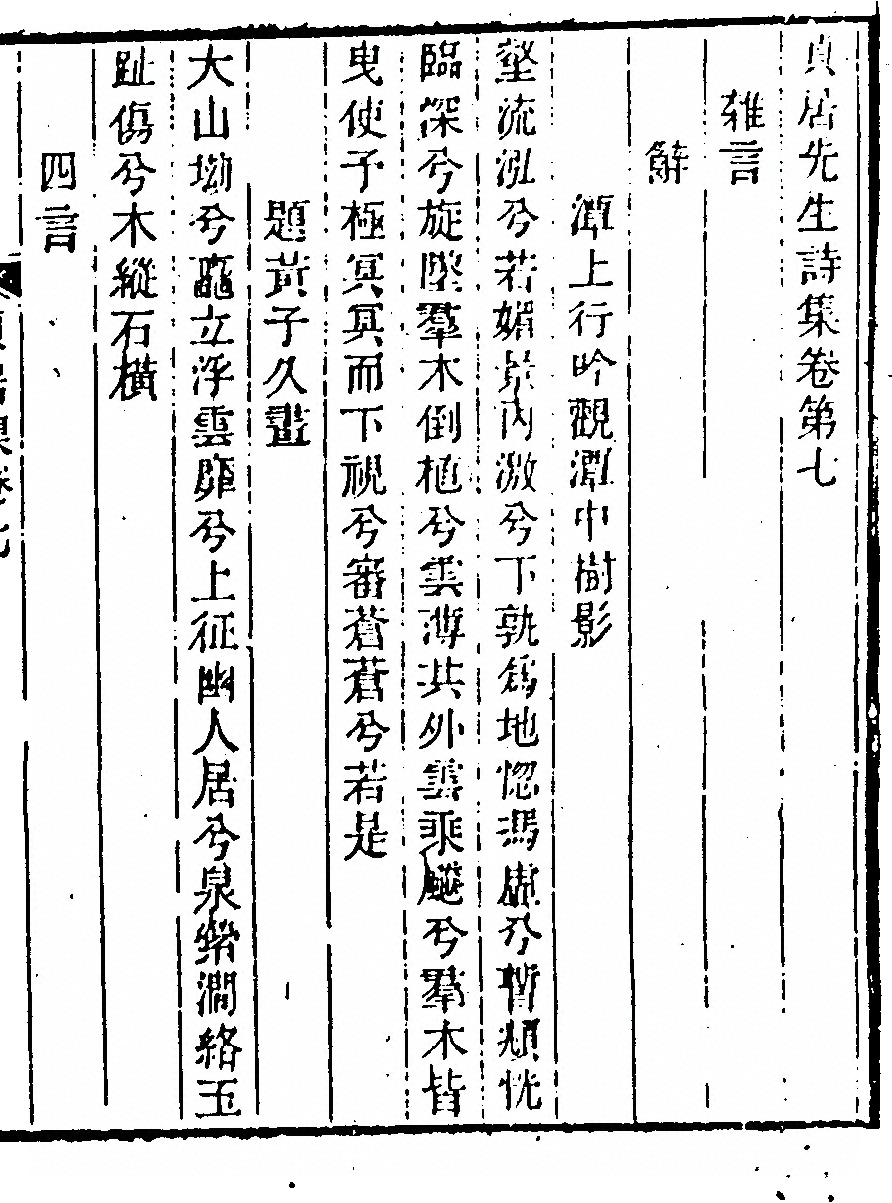 貞居先生詩集卷第七
雜言
辭
潭上行吟觀潭中樹影
壑流泓兮若媚景內激兮下孰為地惚馮虛兮暫頫恍
臨深兮旋墜羣木倒植兮雲薄其外雲乘飈兮羣木皆
曳使予極冥冥而下視兮審蒼蒼兮若是
題黃子久畫
大山坳兮竈立浮雲靡兮上征幽人居兮泉縈澗絡玉
趾傷兮木縱石橫
四言
貞居集卷七